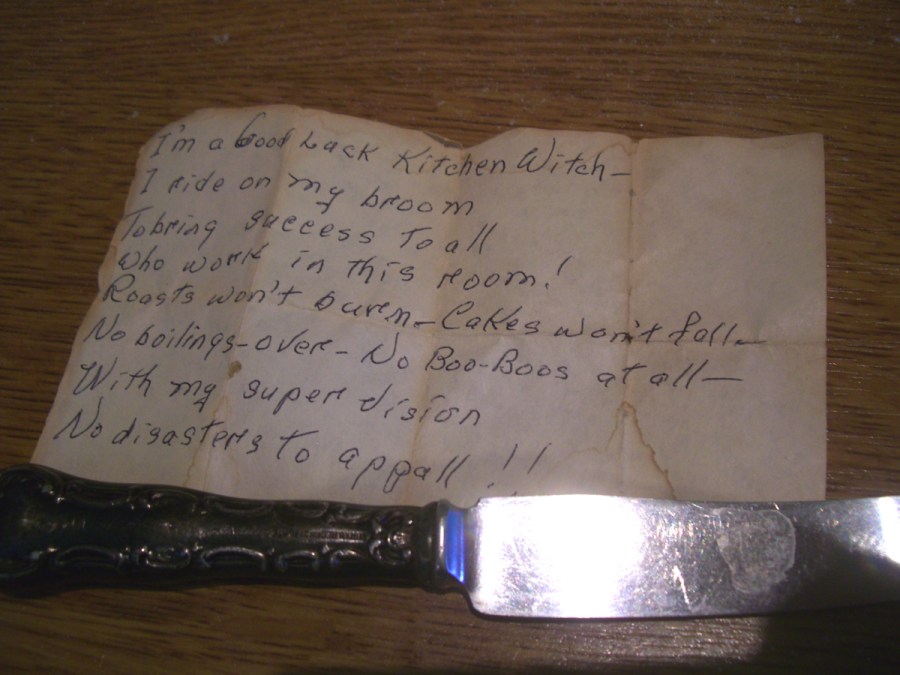 I'm a Good Luck Kitchen Witch—
I ride on my broom
To bring success to all
who work in this room!
Roasts won't burn—Cakes won't fall—
No boilings-over—No Boo-Boos at all—
With my super vision
No disasters to appall!!